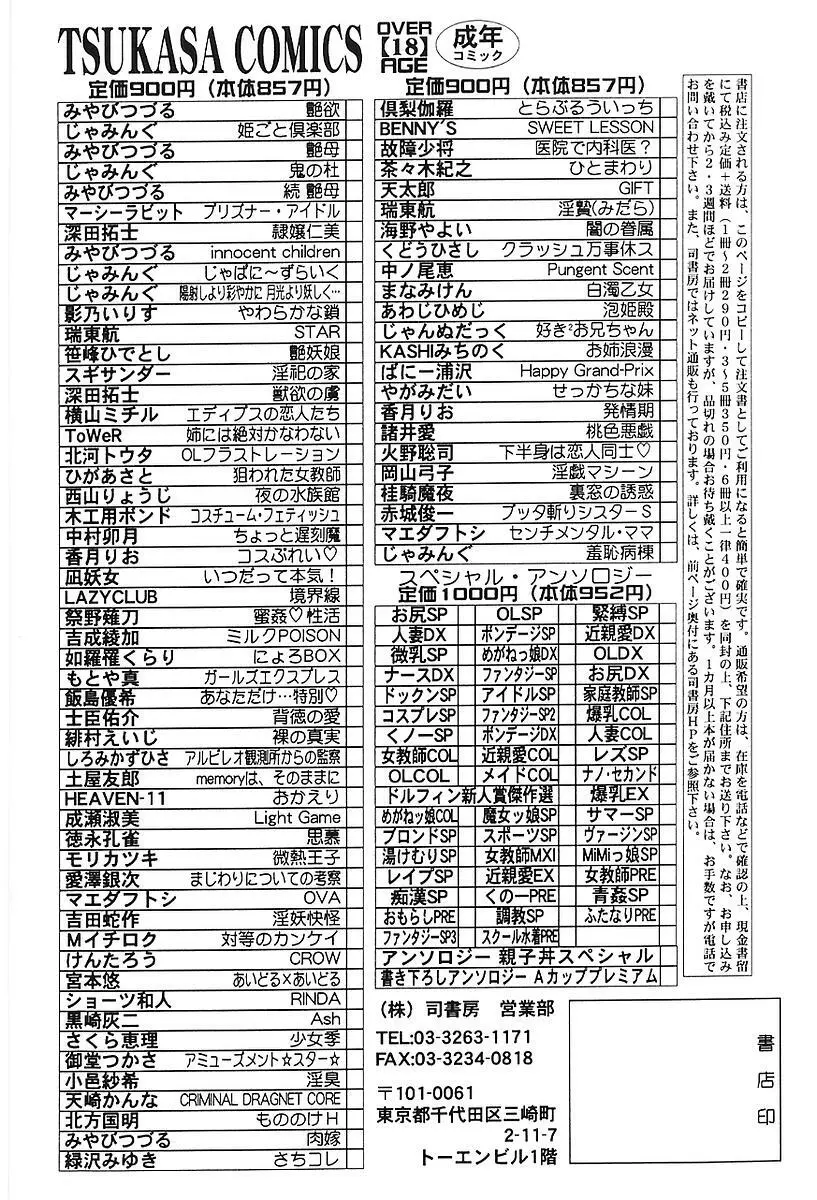 TSUKASA COMICS
OVER
【18】
AGE
成年
コミック
定価900円（本体857円）
みやびつづる 艶欲
じゃみんぐ 姫ごと倶楽部
みやびつづる 艶母
じゃみんぐ 鬼の杜
みやびつづる 続 艶母
マーシーラビット プリズナー・アイドル
深田拓士 隷嬢仁美
みやびつづる innocent children
じゃみんぐ じゃぱに〜ずらいく
じゃみんぐ 陽射しより彩やかに 月光より妖しく…
影乃いりす やわらかな鎖
瑞東航 STAR
笹峰ひでとし 艶妖娘
スギサンダー 淫祀の家
深田拓士 獣欲の虜
横山ミチル エディプスの恋人たち
ToWeR 姉には絶対かなわない
北河トウタ OLフラストレーション
ひがあさと 狙われた女教師
西山りょうじ 夜の水族館
木工用ボンド コスチューム・フェティッシュ
中村卯月 ちょっと遅刻魔
香月りお コスぷれい♡
凪妖女 いつだって本気！
LAZYCLUB 境界線
祭野薙刀 蜜姦♡性活
吉成綾加 ミルクPOISON
如羅羅くらり にょろBOX
もとや真 ガールズエクスプレス
飯島優希 あなただけ…特別♡
士臣佑介 背徳の愛
緋村えいじ 裸の真実
しろみかずひさ アルビレオ観測所からの監察
土屋友郎 memoryは、そのままに
HEAVEN-11 おかえり
成瀬淑美 Light Game
徳永孔雀 思慕
モリカツキ 微熱王子
愛澤銀次 まじわりについての考察
マエダフトシ OVA
吉田蛇作 淫妖快怪
Mイチロク 対等のカンケイ
けんたろう CROW
宮本悠 あいどる×あいどる
ショーツ和人 RINDA
黒崎灰二 Ash
さくら恵理 少女季
御堂つかさ アミューズメント☆スター☆
小邑紗希 淫臭
天崎かんな CRIMINAL DRAGNET CORE
北方国明 もののけH
みやびつづる 肉嫁
緑沢みゆき さちコレ
定価900円（本体857円）
倶梨伽羅 とらぶるういっち
BENNY'S SWEET LESSON
故障少将 医院で内科医？
茶々木紀之 ひとまわり
天太郎 GIFT
瑞東航 淫贄(みだら)
海野やよい 闇の眷属
くどうひさし クラッシュ万事休ス
中ノ尾恵 Pungent Scent
まなみけん 白濁乙女
あわじひめじ 泡姫殿
じゃんぬだっく 好き²お兄ちゃん
KASHIみちのく お姉浪漫
ぱにー浦沢 Happy Grand-Prix
やがみだい せっかちな妹
香月りお 発情期
諸井愛 桃色悪戯
火野聡司 下半身は恋人同士♡
岡山弓子 淫戯マシーン
桂騎魔夜 裏窓の誘惑
赤城俊一 ブッタ斬りシスターS
マエダフトシ センチメンタル・ママ
じゃみんぐ 羞恥病棟
スペシャル・アンソロジー
定価1000円（本体952円）
お尻SP OLSP 緊縛SP
人妻DX ボンデージSP 近親愛DX
微乳SP めがねっ娘DX OLDX
ナースDX ファンタジーSP お尻DX
ドックンSP アイドルSP 家庭教師SP
コスプレSP ファンタジーSP2 爆乳COL
くノーSP ボンデージDX 人妻COL
女教師COL 近親愛COL レズSP
OLCOL メイドCOL ナノ・セカンド
ドルフィン新人賞傑作選 爆乳EX
めがねッ娘COL 魔女ッ娘SP サマーSP
ブロンドSP スポーツSP ヴァージンSP
湯けむりSP 女教師MXI MiMiっ娘SP
レイプSP 近親愛EX 女教師PRE
痴漢SP くの一PRE 青姦SP
おもらしPRE 調教SP ふたなりPRE
ファンタジーSP3 スクール水着PRE
アンソロジー 親子丼スペシャル
書き下ろしアンソロジー Aカッププレミアム
書店に注文される方は、このページをコピーして注文書としてご利用になると簡単で確実です。通販希望の方は、在庫を電話などで確認の上、現金書留
にて税込み定価＋送料（1冊〜2冊290円・3〜5冊350円・6冊以上一律400円）を同封の上、下記住所までお送り下さい。なお、お申し込み
を戴いてから2・3週間ほどでお届けしていますが、品切れの場合お待ち戴くことがございます。1カ月以上本が届かない場合は、お手数ですが電話で
お問い合わせ下さい。また、司書房ではネット通販も行っております。詳しくは、前ページ奥付にある司書房HPをご参照下さい。
（株）司書房 営業部
TEL:03-3263-1171
FAX:03-3234-0818
〒101-0061
東京都千代田区三崎町
2-11-7
トーエンビル1階
書店印